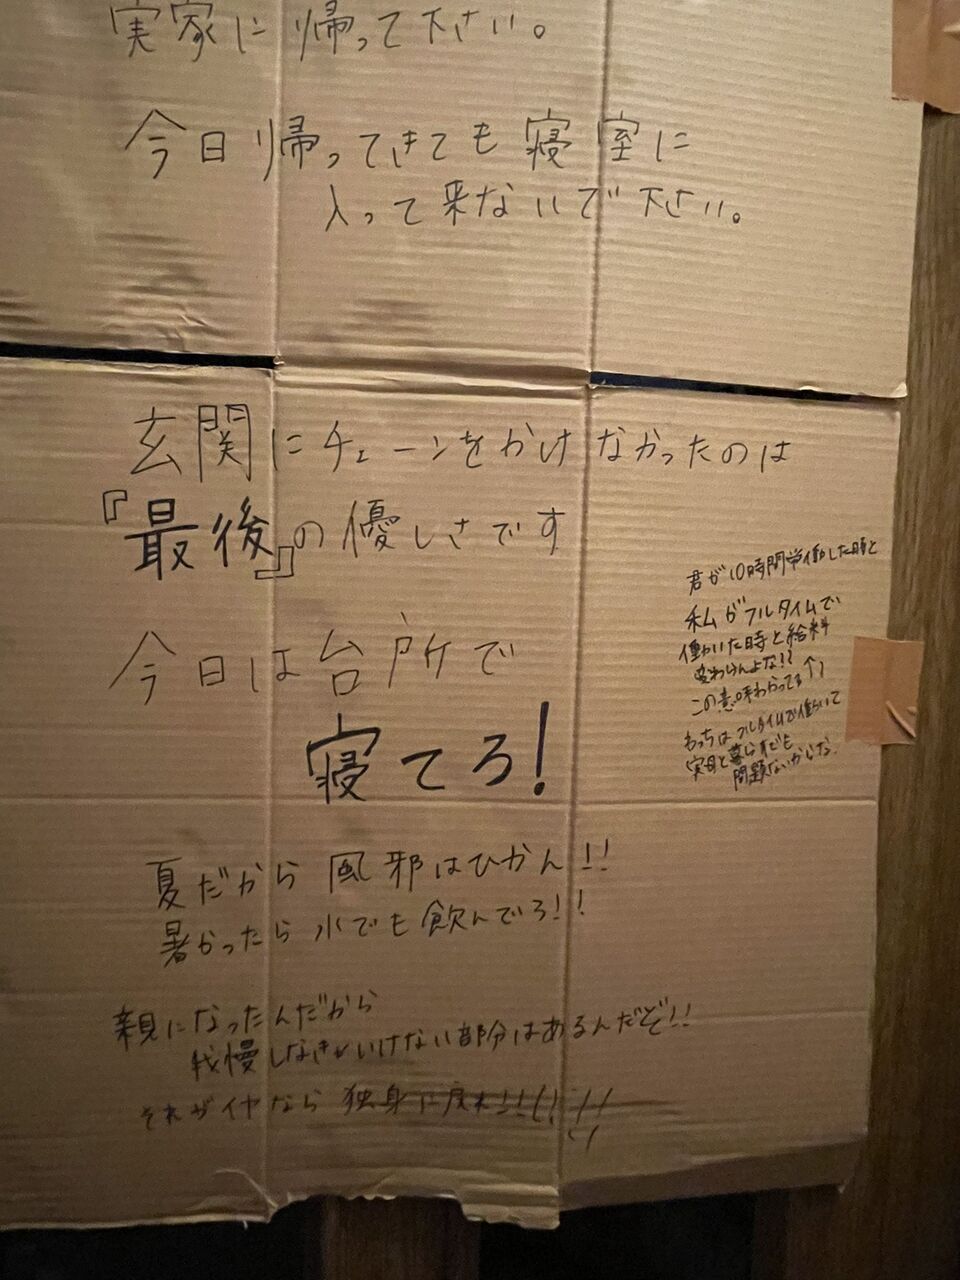 実家に帰って下さい。
今日帰ってきても寝室に
入って来ないで下さい。
玄関にチェーンをかけなかったのは
『最後』の優しさです
今日は台所で
寝てろ!
夏だから風邪はひかん!!
暑かったら水でも飲んでろ!!
親になったんだから
我慢しなきゃいけない部分はあるんだぞ!!
それがイヤなら独身に戻れ!!!!!!
君が10時間労働した時と
私がフルタイムで
働いた時と給料
変わらんよな??
この意味わかってる↑
わっちはフルタイムで働いて
実母と暮らすでも
問題ないからな.